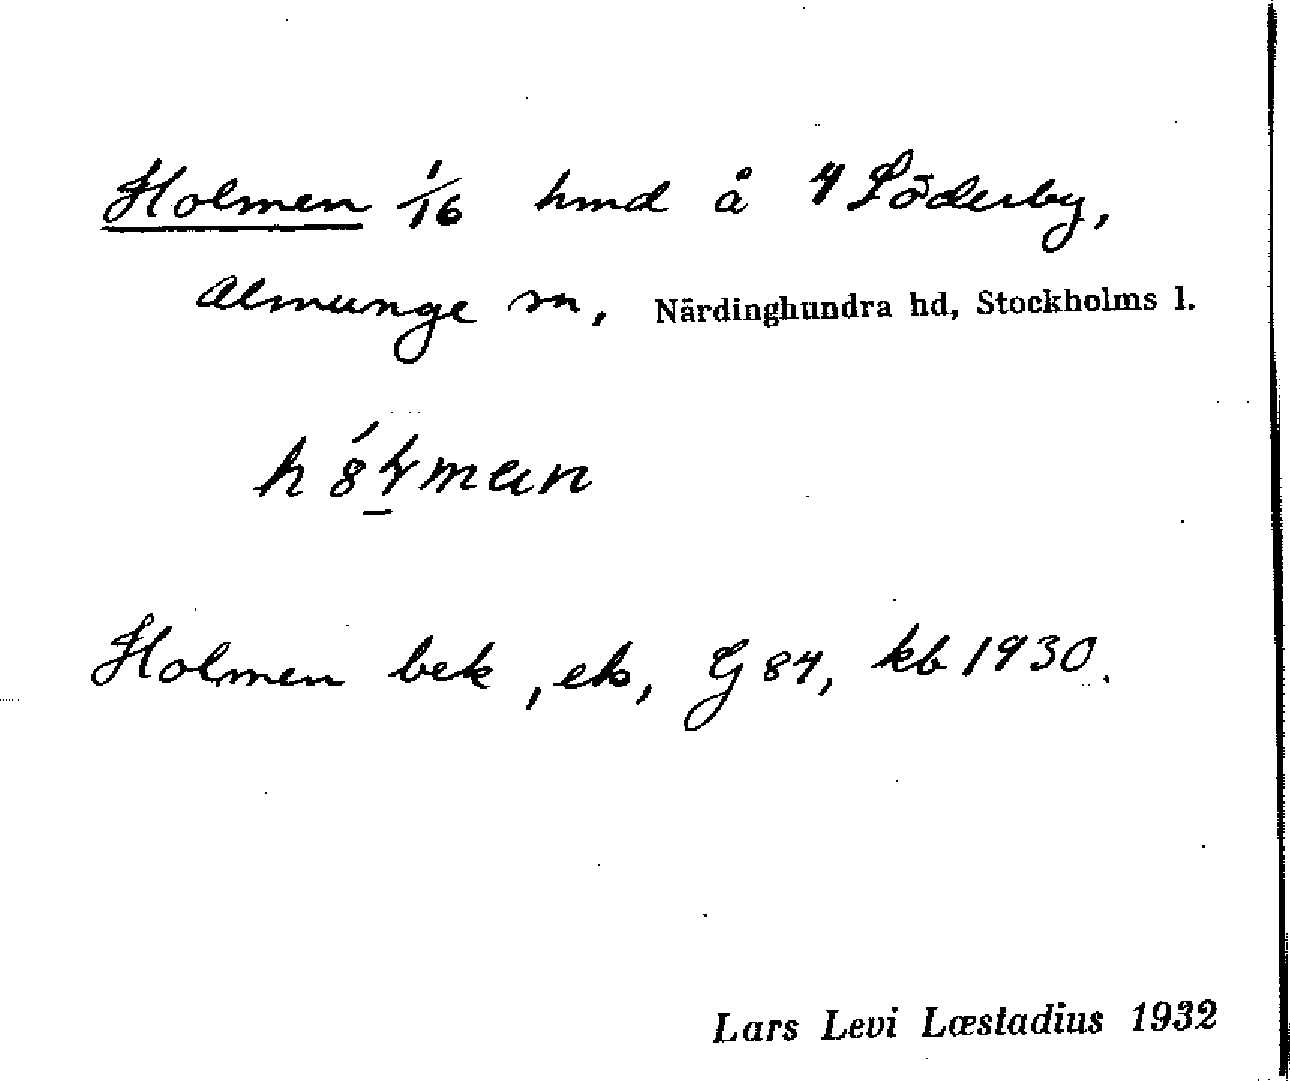 Holmen 1/16 hmd å 4 Söderby,
Almunge sn, Närdinghundra hd, Stockholms l.
Holmen bek, ek, G 84, kb 1930.
Lars Levi Læstadius 1932